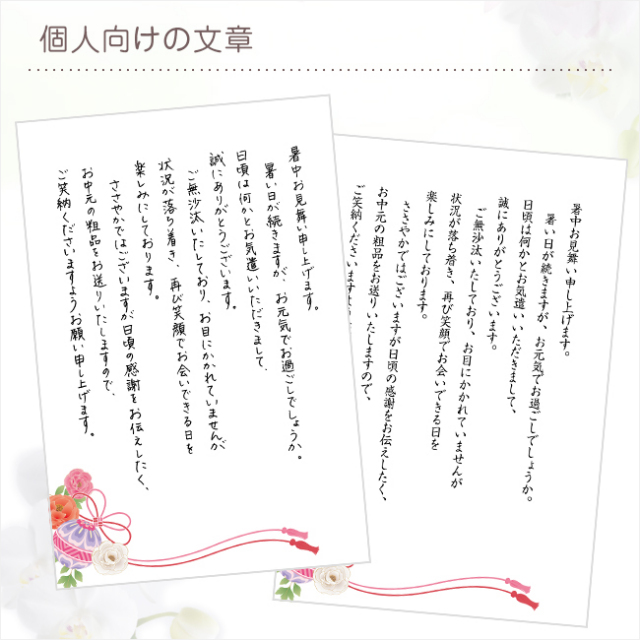 個人向けの文章
暑中お見舞い申し上げます。
暑い日が続きますが、お元気でお過ごしでしょうか。
日頃は何かとお気遣いいただきまして、
誠にありがとうございます。
ご無沙汰いたしており、お目にかかれていませんが
状況が落ち着き、再び笑顔でお会いできる日を
楽しみにしております。
ささやかではございますが日頃の感謝をお伝えしたく、
お中元の粗品をお送りいたしますので、
ご笑納くださいますようお願い申し上げます。
暑中お見舞い申し上げます。
暑い日が続きますが、お元気でお過ごしでしょうか。
日頃は何かとお気遣いいただきまして、
誠にありがとうございます。
ご無沙汰いたしており、お目にかかれていませんが
状況が落ち着き、再び笑顔でお会いできる日を
楽しみにしております。
ささやかではございますが日頃の感謝をお伝えしたく、
お中元の粗品をお送りいたしますので、
ご笑納くださいます